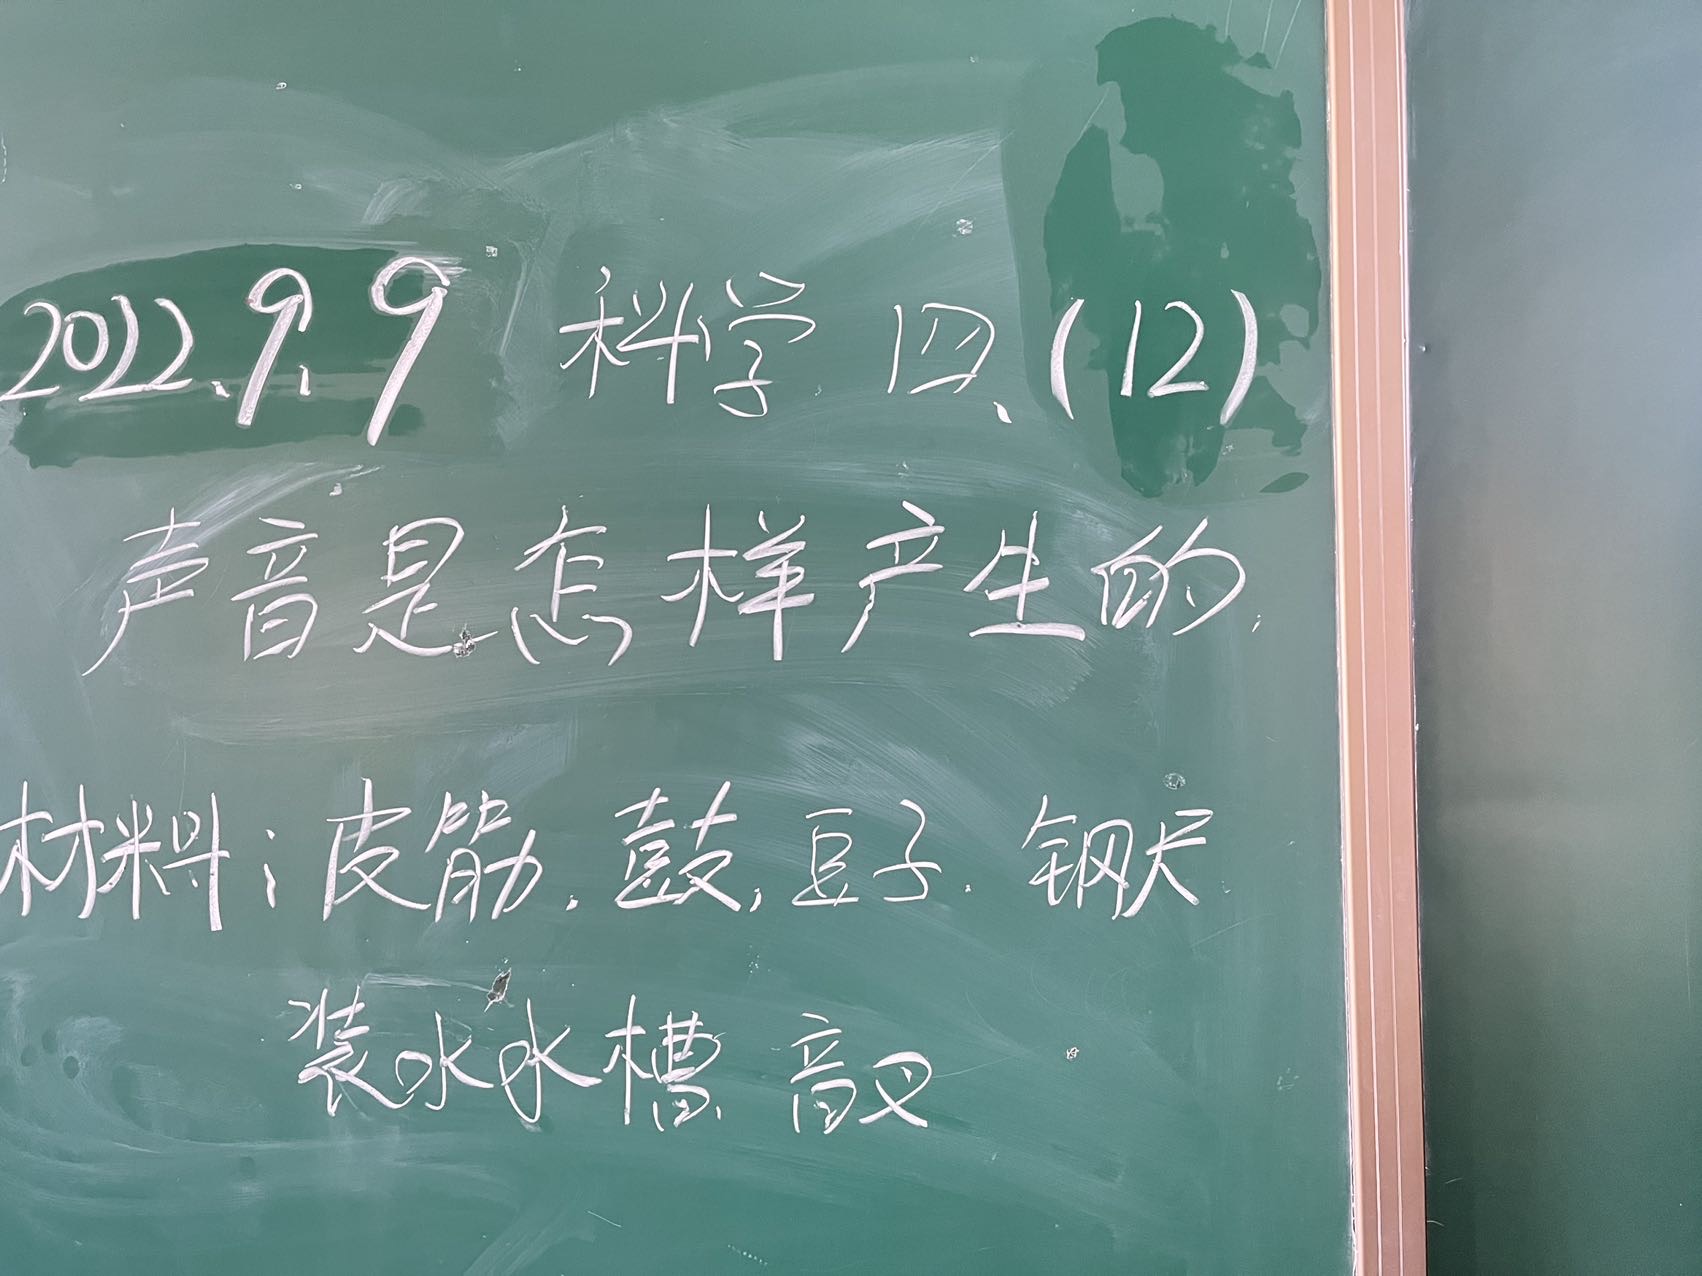 2022.9.9 科学 四、(12)
声音是怎样产生的.
材料：皮筋.鼓,豆子.钢尺
装水水槽 音叉